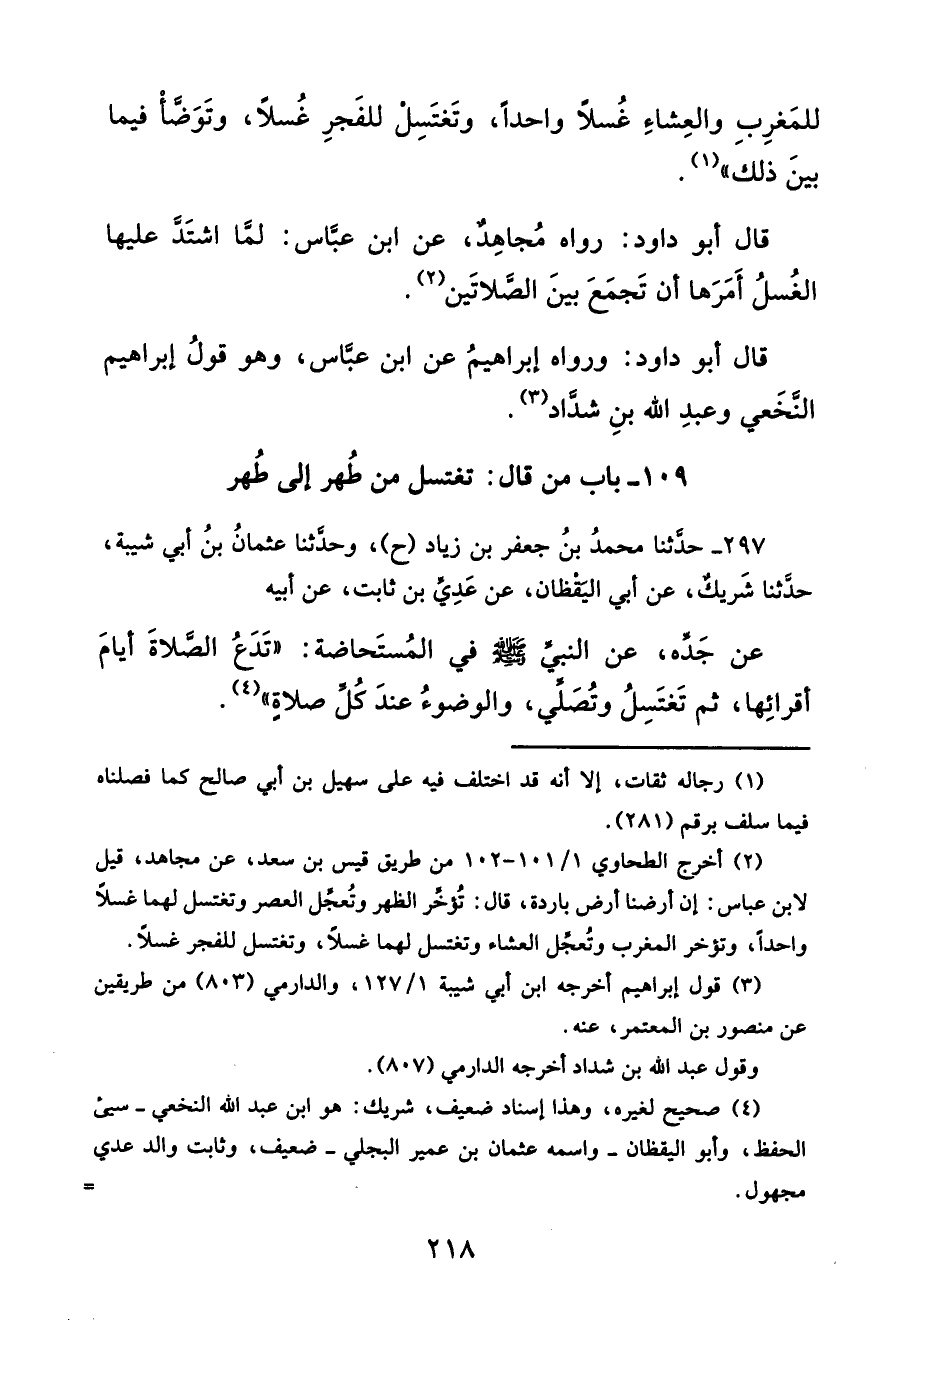 للمَغرِبِ والعِشاءِ غُسلاً واحداً، وتَغتَسِلْ للفَجرِ غُسلاً، وتَوَضَّأْ فيما
بينَ ذلك»(١).
قال أبو داود: رواه مُجاهِدٌ، عن ابن عبَّاس: لمَّا اشتَدَّ عليها
الغُسلُ أَمَرَها أن تَجمَعَ بينَ الصَّلاتَين(٢).
قال أبو داود: ورواه إبراهيمُ عن ابن عبَّاس، وهو قولُ إبراهيم
النَّخَعي وعبدِ الله بنِ شدَّاد(٣).
١٠٩ـ باب من قال: تغتسل من طُهر إلى طُهر
٢٩٧ـ حدَّثنا محمدُ بنُ جعفر بن زياد (ح)، وحدَّثنا عثمانُ بنُ أبي شيبة،
حدَّثنا شَريكٌ، عن أبي اليَقْظان، عن عَدِيِّ بن ثابت، عن أبيه
عن جَدِّه، عن النبيِّ ﷺ في المُستَحاضة: «تَدَعُ الصَّلاةَ أيامَ
أقرائِها، ثم تَغتَسِلُ وتُصَلِّي، والوضوءُ عندَ كُلِّ صلاةٍ»(٤).
(١) رجاله ثقات، إلا أنه قد اختلف فيه على سهيل بن أبي صالح كما فصلناه
فيما سلف برقم (٢٨١).
(٢) أخرج الطحاوي ١/ ١٠١-١٠٢ من طريق قيس بن سعد، عن مجاهد، قيل
لابن عباس: إن أرضنا أرض باردة، قال: تُؤخِّر الظهر وتُعجِّل العصر وتغتسل لهما غسلاً
واحداً، وتؤخر المغرب وتُعجِّل العشاء وتغتسل لهما غسلاً، وتغتسل للفجر غسلاً.
(٣) قول إبراهيم أخرجه ابن أبي شيبة ١/ ١٢٧، والدارمي (٨٠٣) من طريقين
عن منصور بن المعتمر، عنه.
وقول عبد الله بن شداد أخرجه الدارمي (٨٠٧).
(٤) صحيح لغيره، وهذا إسناد ضعيف، شريك: هو ابن عبد الله النخعي ـ سيئ
الحفظ، وأبو اليقظان ـ واسمه عثمان بن عمير البجلي ـ ضعيف، وثابت والد عدي
مجهول. =
٢١٨